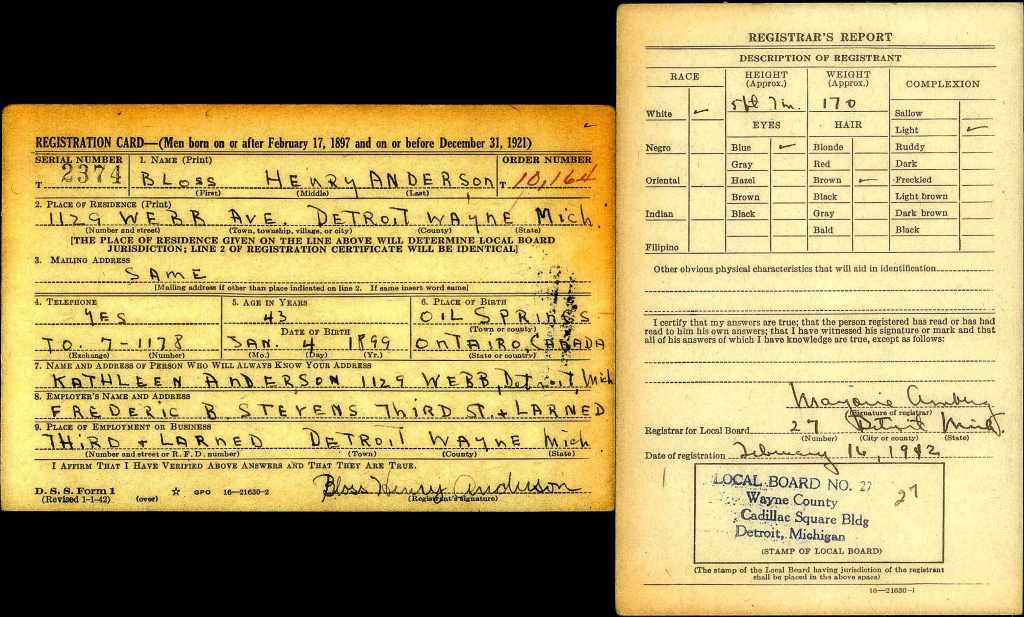 REGISTRATION CARD—(Men born on or after February 17, 1897 and on or before December 31, 1921)
SERIAL NUMBER 1. NAME (Print) ORDER NUMBER
T 2374 BLOSS HENRY ANDERSON T 10,164
(First) (Middle) (Last)
2. PLACE OF RESIDENCE (Print)
1129 WEBB AVE. DETROIT WAYNE Mich
(Number and street) (Town, township, village, or city) (County) (State)
[THE PLACE OF RESIDENCE GIVEN ON THE LINE ABOVE WILL DETERMINE LOCAL BOARD
JURISDICTION; LINE 2 OF REGISTRATION CERTIFICATE WILL BE IDENTICAL]
3. MAILING ADDRESS
SAME
[Mailing address if other than place indicated on line 2. If same insert word same]
4. TELEPHONE 5. AGE IN YEARS 6. PLACE OF BIRTH
YES 43 OIL SPRINGS
DATE OF BIRTH (Town or county)
TO. 7-1178 JAN. 4 1899 ONTAIRO, CANADA
(Exchange) (Number) (Mo.) (Day) (Yr.) (State or country)
7. NAME AND ADDRESS OF PERSON WHO WILL ALWAYS KNOW YOUR ADDRESS
KATHLEEN ANDERSON 1129 WEBB, Detroit, Mich
8. EMPLOYER'S NAME AND ADDRESS
FREDERIC B. STEVENS THIRD ST. + LARNED
9. PLACE OF EMPLOYMENT OR BUSINESS
THIRD + LARNED DETROIT WAYNE Mich
(Number and street or R. F. D. number) (Town) (County) (State)
I AFFIRM THAT I HAVE VERIFIED ABOVE ANSWERS AND THAT THEY ARE TRUE.
Bloss Henry Anderson
D. S. S. Form 1
(Revised 1-1-42) (over) ☆ GPO 16—21630-2 (Registrant's signature)
REGISTRAR'S REPORT
DESCRIPTION OF REGISTRANT
RACE HEIGHT (Approx.) WEIGHT (Approx.) COMPLEXION
White ✓ 5 ft 7 in. 170 Sallow
EYES HAIR Light ✓
Negro Blue ✓ Blonde Ruddy
Gray Red Dark
Oriental Hazel Brown ✓ Freckled
Brown Black Light brown
Indian Black Gray Dark brown
Bald Black
Filipino
Other obvious physical characteristics that will aid in identification
I certify that my answers are true; that the person registered has read or has had
read to him his own answers; that I have witnessed his signature or mark and that
all of his answers of which I have knowledge are true, except as follows:
Marjorie
(Signature of registrar)
Registrar for Local Board 27 Detroit Mich.
(Number) (City or county) (State)
Date of registration February 16, 1942
LOCAL BOARD NO. 27 27
Wayne County
Cadillac Square Bldg
Detroit, Michigan
(STAMP OF LOCAL BOARD)
(The stamp of the Local Board having jurisdiction of the registrant
shall be placed in the above space)
16—21630-1